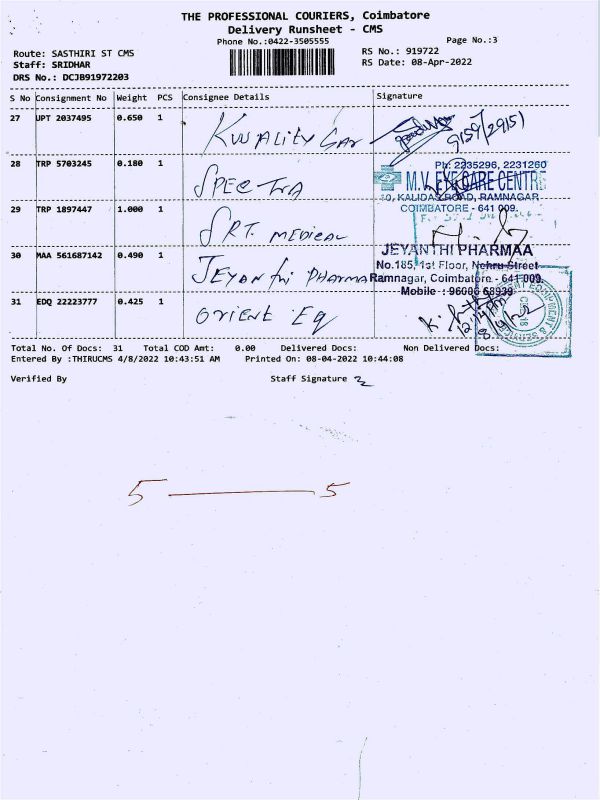 THE PROFESSIONAL COURIERS, Coimbatore
Delivery Runsheet - CMS
Phone No.:0422-3505555
Page No.:3
Route: SASTHIRI ST CMS
RS No.: 919722
Staff: SRIDHAR
RS Date: 08-Apr-2022
DRS No.: DCJB91972203
S No Consignment No Weight PCS Consignee Details Signature
27 UPT 2037495 0.650 1 KWALITY GAR
9159/2915)
28 TRP 5703245 0.180 1 SPECTRA
Ph: 2235296, 2231260
M.V. EYE CARE CENTRE
KALIDAS ROAD, RAMNAGAR
COIMBATORE - 641 009.
29 TRP 1897447 1.000 1 SRT. MEDICAL
30 MAA 561687142 0.490 1 JEYANTHI PHARMA
JEYANTHI PHARMAA
No.185, 1st Floor, Nehru Street
Ramnagar, Coimbatore - 641 009.
Mobile : 96006 68939
31 EDQ 22223777 0.425 1 ORIENT EQ
8/4/22
Total No. Of Docs: 31 Total COD Amt: 0.00 Delivered Docs: Non Delivered Docs:
Entered By :THIRUCMS 4/8/2022 10:43:51 AM Printed On: 08-04-2022 10:44:08
Verified By Staff Signature
5 — 5